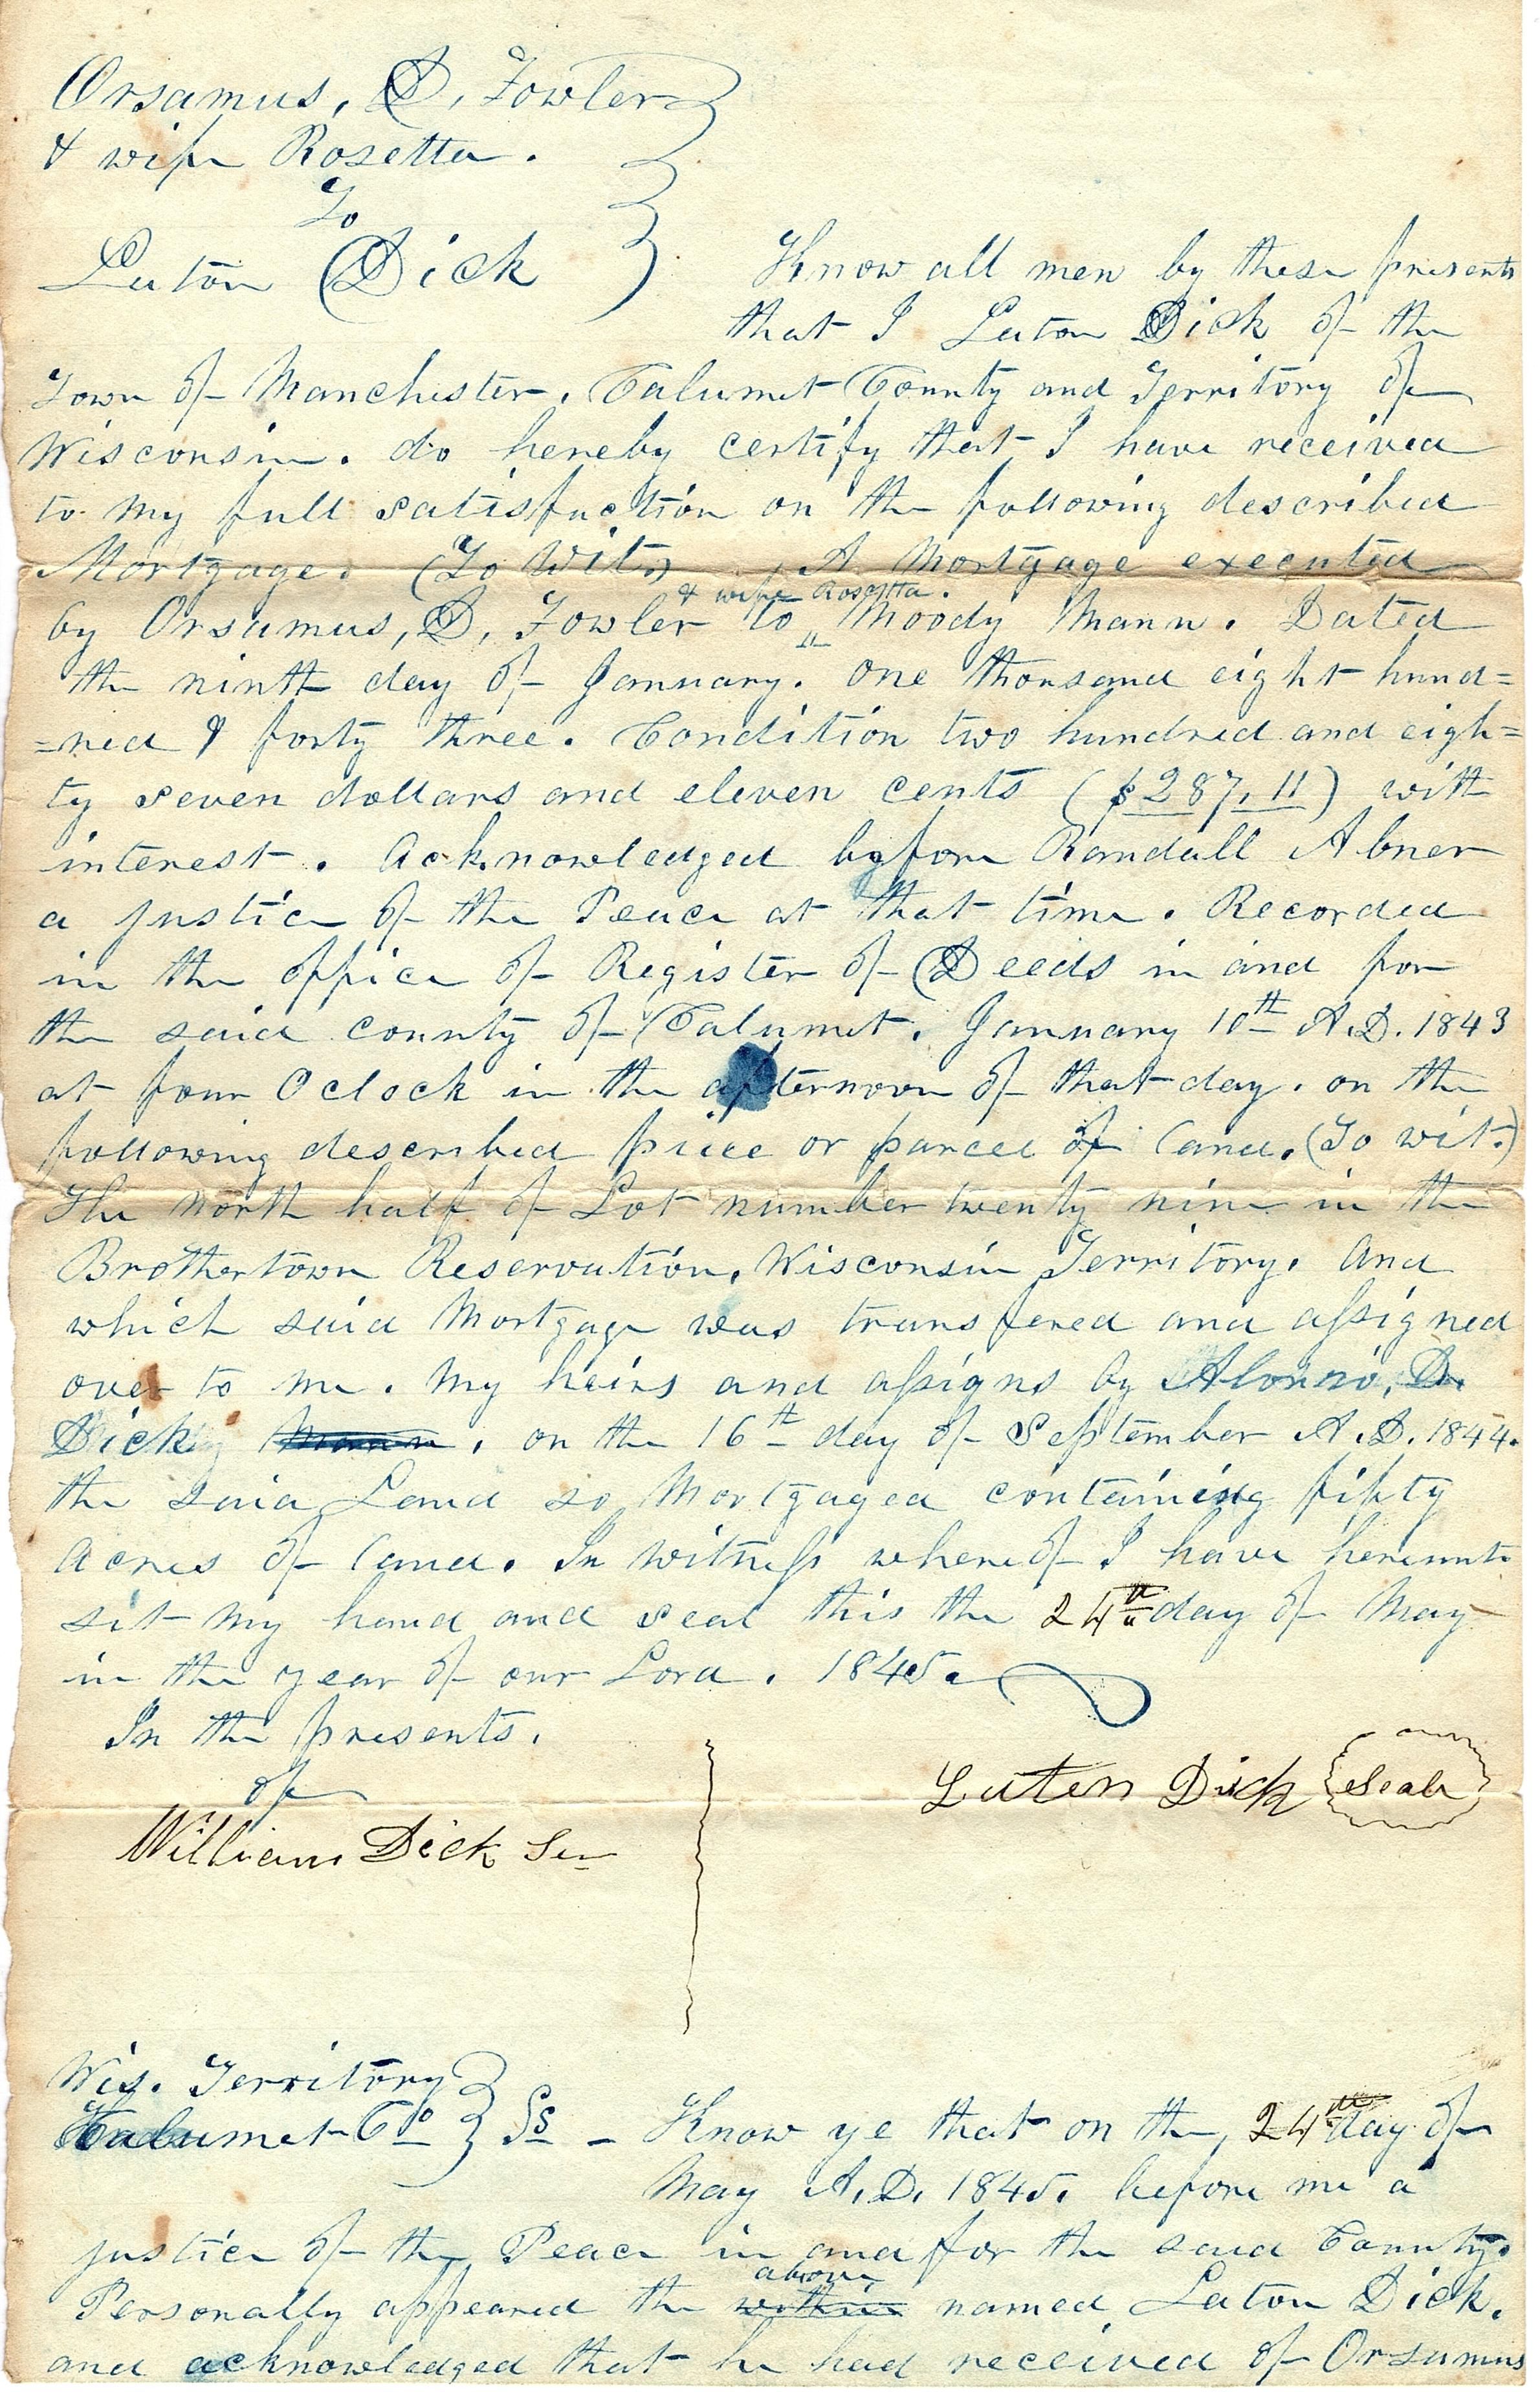 Orsamus, D, Fowler
& wife Rosetta.
To
Luton Dick
Know all men by these presents
that I Luton Dick of the
Town of Manchester, Calumet County and Territory of
Wisconsin. do hereby certify that I have received
to my full satisfaction on the following described
Mortgage. (To Wit.) A Mortgage executed
& wife Rosetta.
by Orsamus, D, Fowler to Moody Mann. Dated
the ninth day of January. one thousand eight hund=
=red & forty three. Condition two hundred and eigh=
ty seven dollars and eleven cents ($287,11) with
interest. Acknowledged before Randall Abner
a justice of the Peace at that time. Recorded
in the office of Register of Deeds in and for
the said county of Calumet, January 10th A.D. 1843
at four Oclock in the afternoon of that day. on the
following described piece or parcel of land. (To wit.)
The north half of Lot number twenty nine in the
Brothertown Reservation, Wisconsin Territory. And
which said Mortgage was transfered and assigned
over to me. my heirs and assigns by Alonzo, D.
Dick Mann, on the 16th day of September A.D. 1844.
the said Land so Mortgaged containing fifty
acres of land. In witness whereof I have hereunto
set my hand and seal this the 24th day of May
in the year of our Lord. 1845.
In the presents.
of
Luten Dick Seal
William Dick Sen
Wis. Territory
Calumet Co Ss - Know ye that on the, 24th day of
May A.D. 1845. before me a
justice of the Peace in and for the said County.
above
Personally appeared the within named Luton Dick.
and acknowledged that he had received of Orsamus